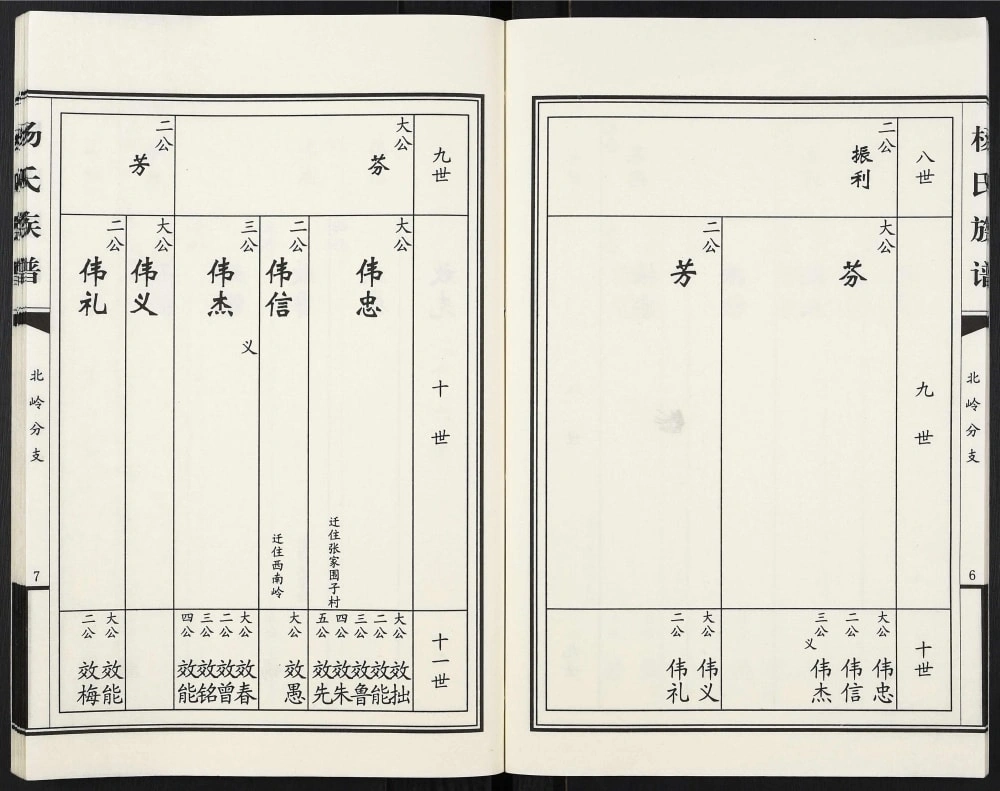 杨氏族谱
北岭分支
6
八世
二公
振利
九世
大公
芬
二公
芳
十世
大公
伟忠
二公
伟信
三公
义
伟杰
大公
伟义
二公
伟礼
九世
大公
芬
二公
芳
十世
大公
伟忠
迁住张家围子村
二公
伟信
迁住西南岭
三公
义
伟杰
大公
伟义
二公
伟礼
十一世
大公
效拙
二公
效能
三公
效鲁
四公
效朱
五公
效先
大公
效愚
大公
效春
二公
效曾
三公
效铭
四公
效能
大公
效能
二公
效梅
杨氏族谱
北岭分支
7